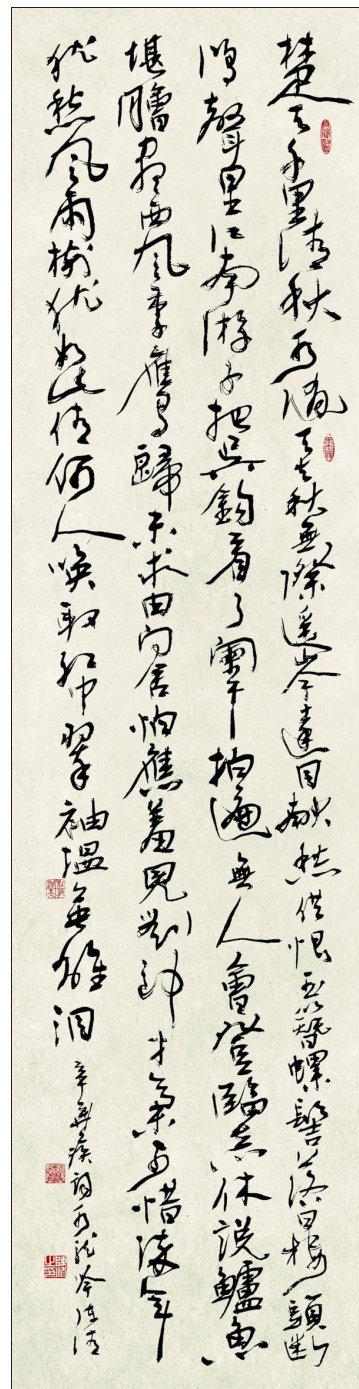 楚天千里清秋水隨天去秋無際遙岑遠目獻愁供恨玉簪螺髻落日樓頭斷
鴻聲里江南游子把吳鈎看了闌干拍遍無人會登臨意休說鱸魚
堪膾盡西風季鷹歸未求田問舍怕應羞見劉郎才氣可惜流年
忧愁風雨樹犹如此倩何人喚取紅巾翠袖搵英雄淚
辛棄疾詞水龍吟